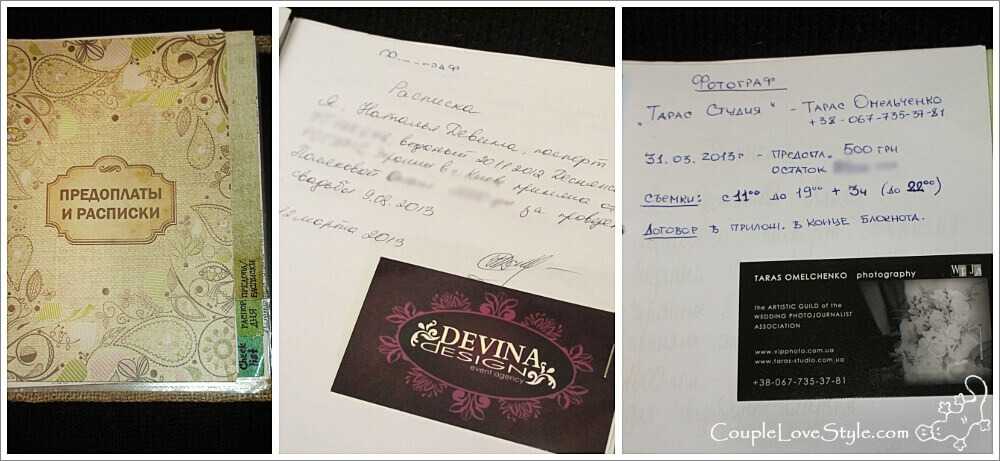 ПРЕДОПЛАТЫ
И РАСПИСКИ
РАСПОР.
ДНЯ
Check
list
Расписка
Я, Наталья Девина, паспорт
2011 2012
в г. Киев, приняла от
за проведен
свадьбы 9.08.2013
марта 2013
DEVINA
DESIGN
event agency
ФОТОГРАФ
"ТАРАС СТУДИЯ" - ТАРАС ОМЕЛЬЧЕНКО
+38-067-735-37-81
31.03.2013г - ПРЕДОПЛ. 500 ГРН
ОСТАТОК
СЪЕМКИ: с 11⁰⁰ до 19⁰⁰ + 3ч (до 22⁰⁰)
ДОГОВОР В ПРИЛОЖ. В КОНЦЕ БЛОКНОТА.
TARAS OMELCHENKO photography
the ARTISTIC GUILD of the
WEDDING PHOTOJOURNALIST
ASSOCIATION
www.vipphoto.com.ua
www.taras-studio.com.ua
+38-067-735-37-81
CoupleLoveStyle.com